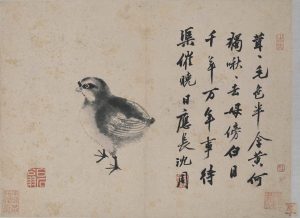 茸〻毛色半含黃何
獨啾〻去母傍白日
千年萬年事待
渠催曉日應長沈周